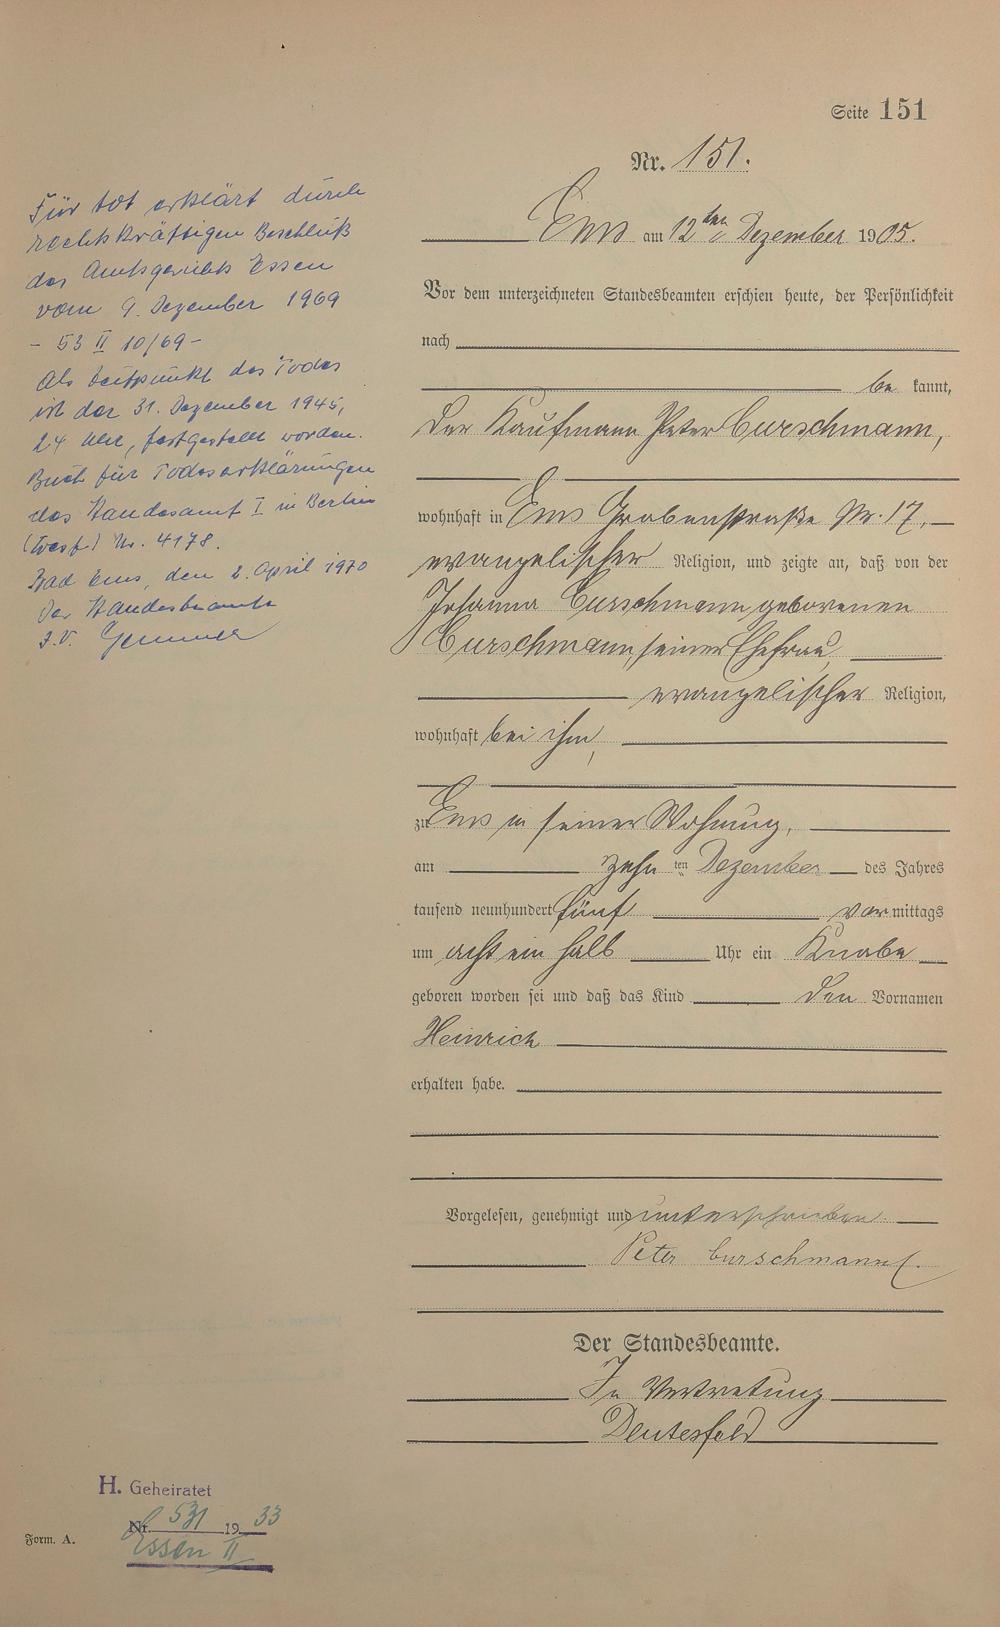 Seite 151
Nr. 151.
Ems am 12ten Dezember 1905.
Vor dem unterzeichneten Standesbeamten erschien heute, der Persönlichkeit
nach
be kannt,
der Kaufmann Peter Curschmann,
wohnhaft in Ems Grabenstraße Nr. 17,
evangelischer Religion, und zeigte an, daß von der
Johanna Curschmann geborenen
Curschmann, seiner Ehefrau,
evangelischer Religion,
wohnhaft bei ihm,
zu Ems in seiner Wohnung,
am zehn ten Dezember des Jahres
tausend neunhundert fünf vor mittags
um acht ein halb Uhr ein Knabe
geboren worden sei und daß das Kind den Vornamen
Heinrich
erhalten habe.
Vorgelesen, genehmigt und unterschrieben
Peter Curschmann
Der Standesbeamte.
In Vertretung
Deutesfeld
Für tot erklärt durch
rechtskräftigen Beschluß
des Amtsgerichts Essen
vom 9. Dezember 1969
- 53 II 10/69 -
Als Zeitpunkt des Todes
ist der 31. Dezember 1945,
24 Uhr, festgestellt worden.
Buch für Todeserklärungen
des Standesamt I in Berlin
(West) Nr. 4178.
Bad Ems, den 2. April 1970
Der Standesbeamte
I.V.
H. Geheiratet
Nr. 531 1933
Essen II
Form. A.